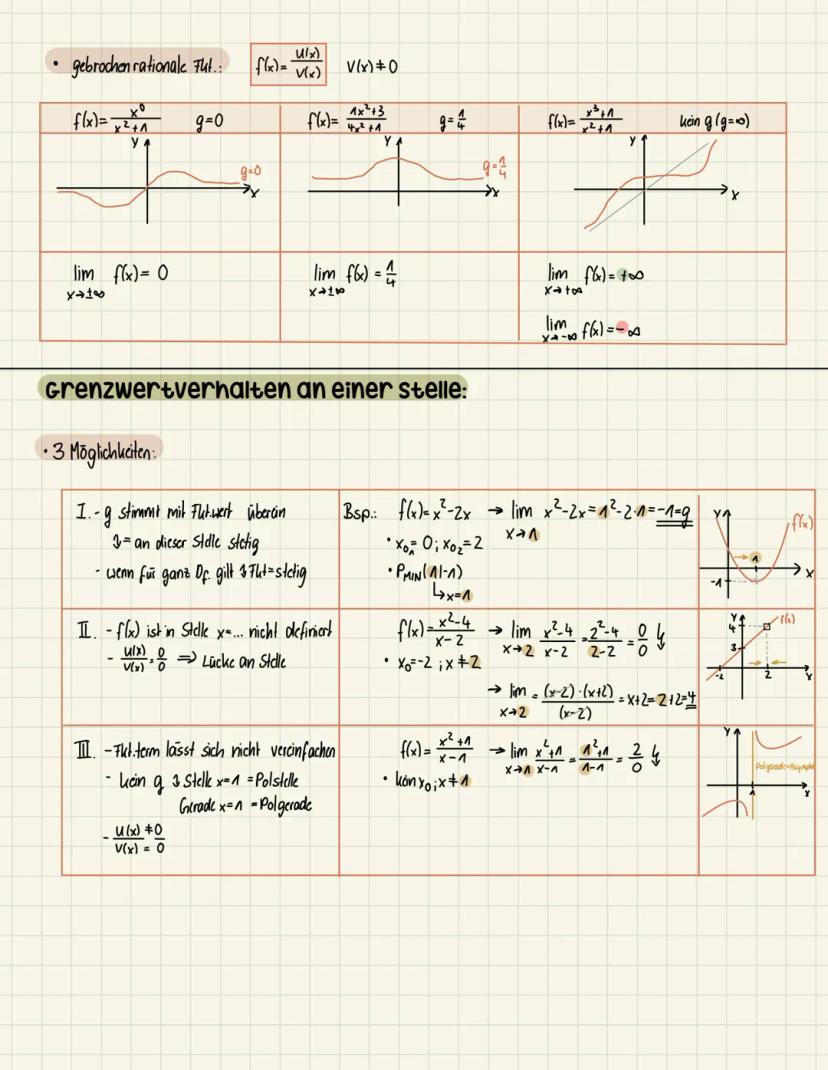 • gebrochenrationale Fkt.: f(x)= u(x)/v(x) v(x)≠0
f(x)= x⁰/(x²+1) g=0
f(x)= (1x²+3)/(4x²+1) g= 1/4
f(x)= (x³+1)/(x²+1) kein g (g=∞)
y x g=0
y x g=1/4
y x
lim f(x)= 0
x→±∞
lim f(x) = 1/4
x→±∞
lim f(x)= +∞
x→+∞
lim f(x)= -∞
x→-∞
Grenzwertverhalten an einer stelle:
• 3 Möglichkeiten:
I. - g stimmt mit Fkt.wert überein
↕= an dieser Stelle stetig
- wenn für ganz Df. gilt ↕ Fkt=stetig
Bsp.: f(x)= x²-2x → lim x²-2x = 1²-2·1 = -1 = g
x→1
• x₀₁= 0; x₀₂=2
• PMIN(1|-1)
↳x=1
y f(x) 1 x -1
II. - f(x) ist in Stelle x=... nicht definiert
- u(x)/v(x) = 0/0 ⇒ Lücke an Stelle
f(x)= (x²-4)/(x-2) → lim (x²-4)/(x-2) = (2²-4)/(2-2) = 0/0 ↯
x→2
• x₀=-2 ; x≠2
→ lim = ((x-2)·(x+2))/(x-2) = x+2=2+2=4
x→2
y f(x) 4 3 -2 2 x
III. - Fkt.term lässt sich nicht vereinfachen
- kein g ↕ Stelle x=1 = Polstelle
Gerade x=1 = Polgerade
- u(x) ≠0
v(x) = 0
f(x)= (x²+1)/(x-1) → lim (x²+1)/(x-1) = (1²+1)/(1-1) = 2/0 ↯
x→1
• kein x₀; x≠1
y Polgerade=Asymptot 1 x